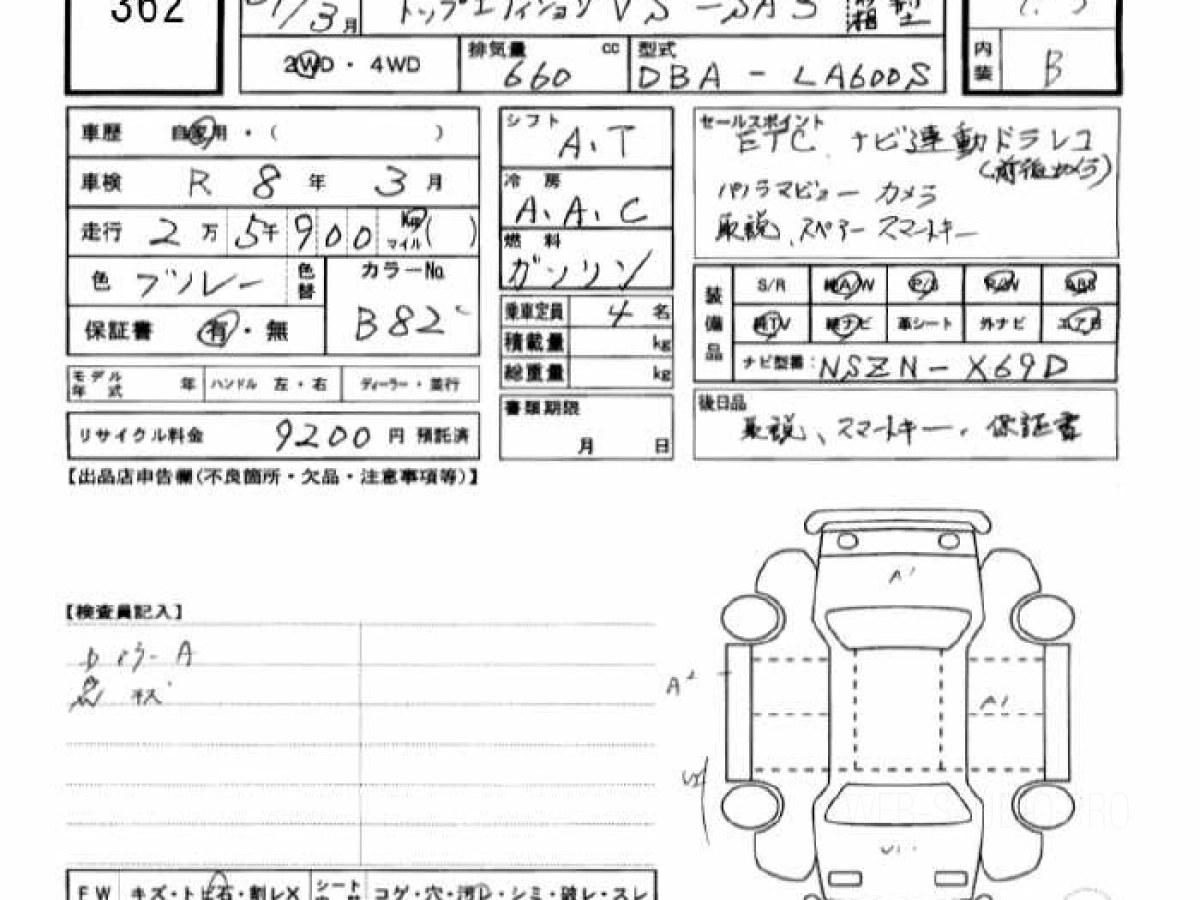 362
3月
トップエディション VS-SA3
2WD・4WD
排気量 cc
660
型式
DBA - LA600S
内装 B
車歴 自家用・( )
車検 R 8 年 3 月
走行 2 万 5 千 900 Km マイル ( )
色 ブルー 色替
カラーNo.
B82
保証書 有・無
モデル年式 年 ハンドル 左・右 ディーラー・並行
リサイクル料金 9200 円 預託済
シフト
A.T
冷房
A.A.C
燃料
ガソリン
乗車定員 4 名
積載量 kg
総重量 kg
書類期限
月 日
セールスポイント
ETC ナビ連動ドラレコ
(前後カメラ)
パノラマビューカメラ
取説、スペアースマートキー
装備品
S/R 純A/W P/S P/W ABS
純TV 純ナビ 革シート 外ナビ エアB
ナビ型番: NSZN-X69D
後日品
取説、スマートキー、保証書
【出品店申告欄(不良箇所・欠品・注意事項等)】
【検査員記入】
A
A1
A2
A1
WEB-S
PRO
FW キズ・ト
石・割レX
シート
コゲ・穴・汚レ・シミ・破レ・スレ